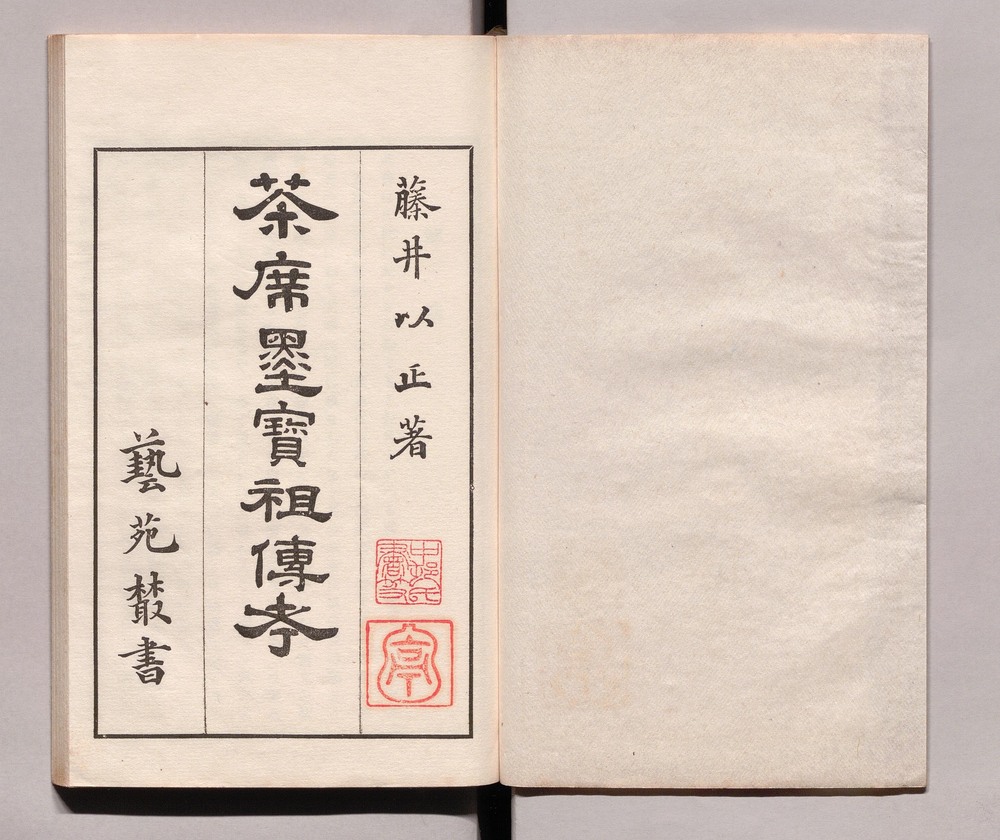 藤井以正著
茶席墨寶祖傳考
藝苑叢書
亭